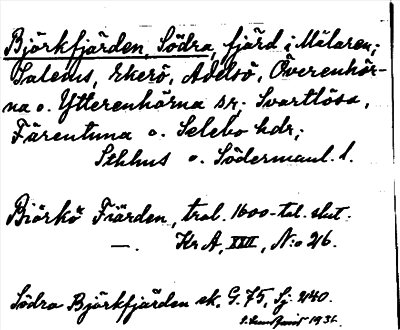 Björkfjärden, Södra, fjärd i Mälaren;
Salems, Ekerö, Adelsö, Överenhör-
na o. Ytterenhörna sr; Svartlösa,
Färentuna o. Selebo hdr;
Sthlms o. Södermanl. l.
Biörkö Fiärden, trol. 1600-tal. slut.
—. Kr A, XVII, N:o 26.
Södra Björkfjärden ek. G. 75, Sj. 240.
1931.